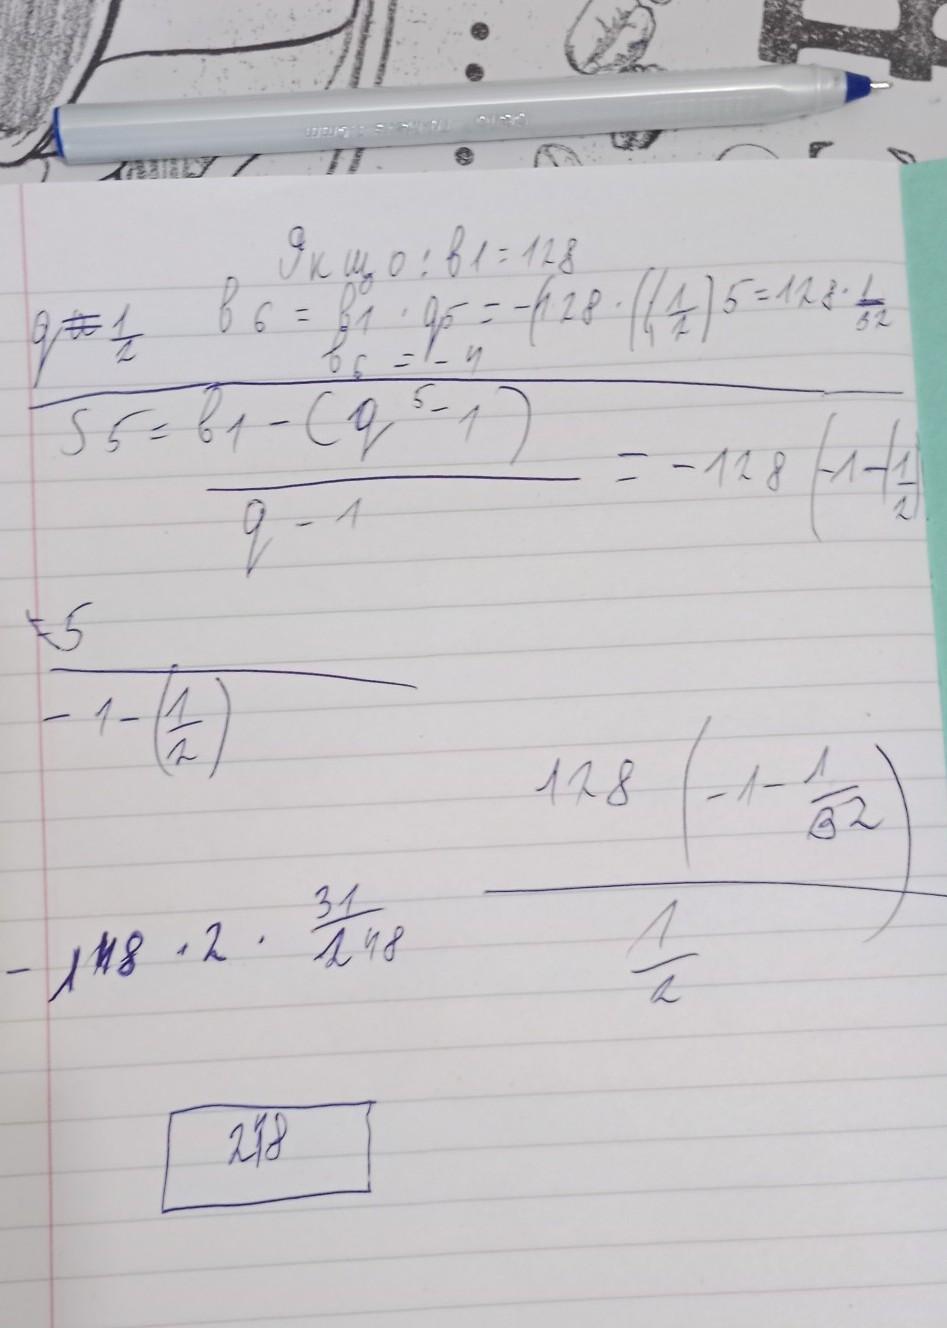 Якщо: в1 = 128
q = 1/2 в6 = в1 · q5 = -(128 · ((1/2)5 = 128 · 1/32
в6 = -4
S5 = в1 - (q^5 - 1) / q - 1 = -128 (-1-(1/2)
5 / -1-(1/2)
128 (-1-1/32) / 1/2
2 · 31/248
248